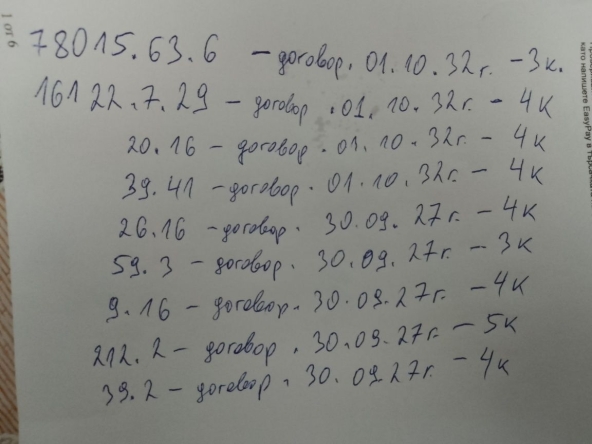 1 от 6
78015.63.6 – договор. 01.10.32г. – 3к.
16122.7.29 – договор. 01.10.32г. – 4к
20.16 – договор. 01.10.32г. – 4к
39.41 – договор. 01.10.32г. – 4к
26.16 – договор. 30.09.27г. – 4к
59.3 – договор. 30.09.27г. – 3к
9.16 – договор. 30.09.27г. – 4к
212.2 – договор. 30.09.27г. – 5к
39.2 – договор. 30.09.27г. – 4к
като напишете EasyPay в